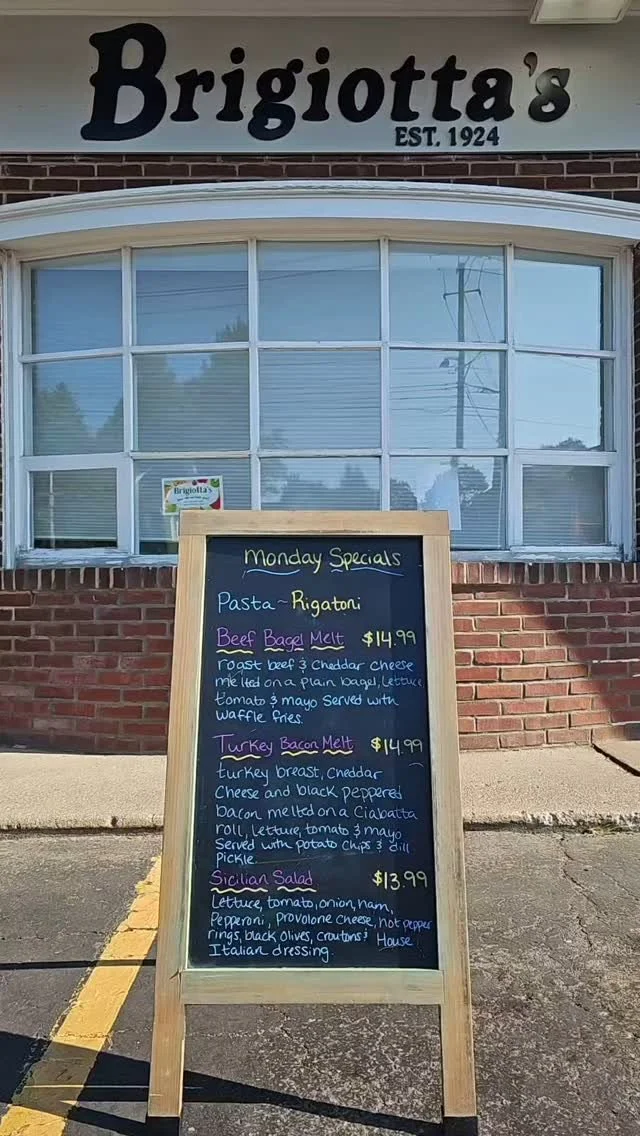 Brigiotta's
EST. 1924
Brigiotta's
Monday Specials
Pasta ~ Rigatoni
Beef Bagel Melt $14.99
roast beef & Cheddar Cheese
melted on a plain bagel, Lettuce
tomato & mayo Served with
waffle fries.
Turkey Bacon Melt $14.99
turkey breast, Cheddar
Cheese and black peppered
bacon melted on a Ciabatta
roll, lettuce, tomato & mayo
Served with potato Chips & dill
pickle.
Sicilian Salad $13.99
Lettuce, tomato, onion, ham,
Pepperoni, Provolone Cheese, hot pepper
rings, black olives, croutons & House
Italian dressing.